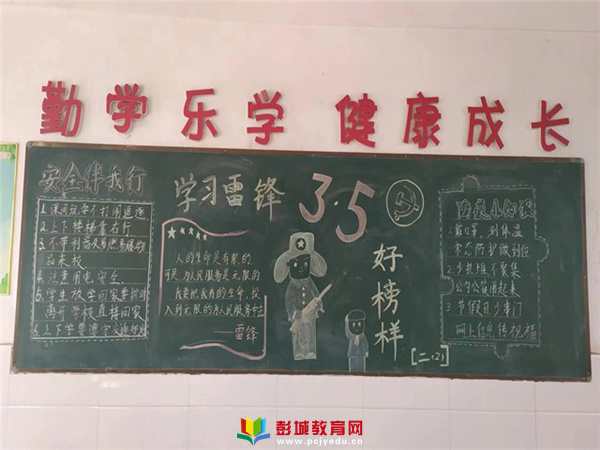 勤学 乐学 健康成长
安全伴我行
1.课间玩耍不打闹追逐
2.上下楼梯靠右行
3.不带利器及易燃易爆物
品来校
4.注意用电安全.
5.学生放学回家要按时
离开学校直接回家
6.上下学要遵守交通规则
学习雷锋
3·5
好榜样
人的生命是有限的,
可是,为人民服务是无限的
我要把我有的生命,投
入到无限的为人民服务中去
——雷锋
[二(2)]
防疫小知识
1.戴口罩,测体温
常态防护做到位
2.少扎堆不聚集
公勺公筷用起来
3.节假日少串门
网上信息传祝福
彭城教育网
www.pcjyedu.cn